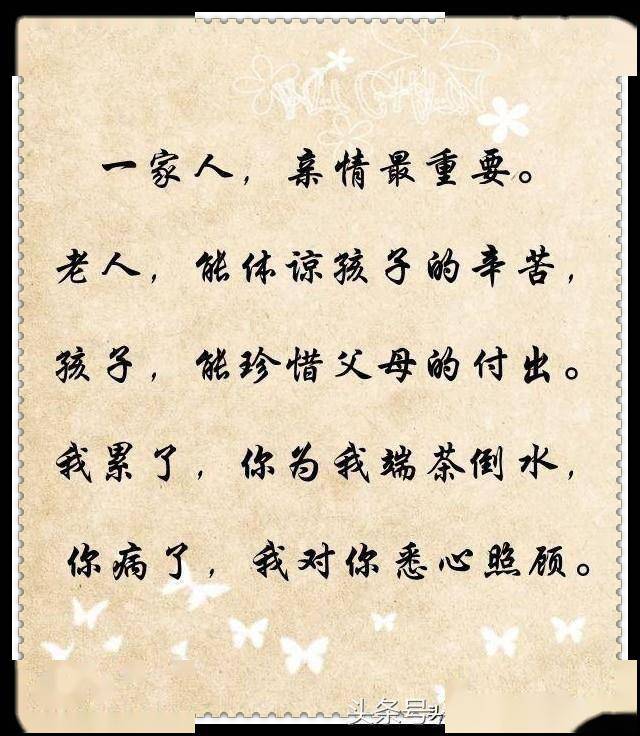 一家人，亲情最重要。
老人，能体谅孩子的辛苦，
孩子，能珍惜父母的付出。
我累了，你为我端茶倒水，
你病了，我对你悉心照顾。
头条号